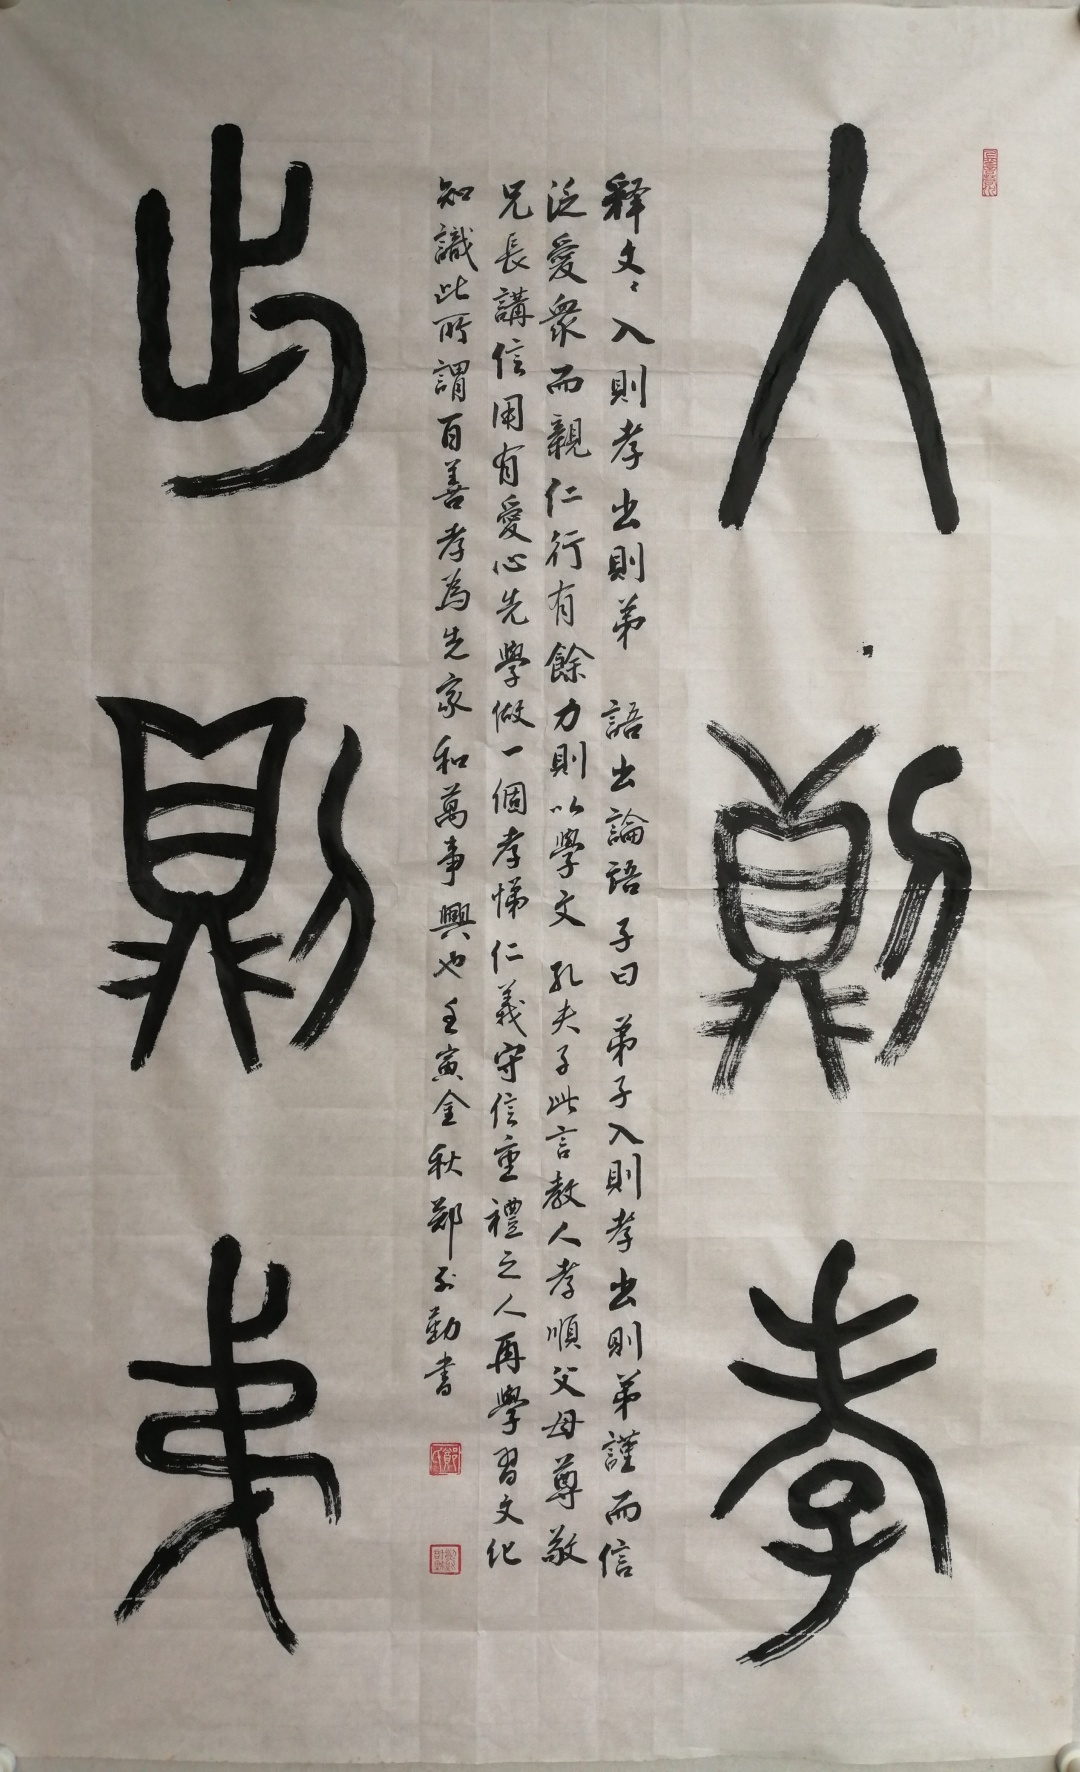 入則孝
释文：入則孝出則弟 語出論語子曰弟子入則孝出則弟謹而信
泛愛衆而親仁行有餘力則以學文 孔夫子此言教人孝順父母尊敬
兄長講信用有愛心先學做一個孝悌仁義守信重禮之人再學習文化
知識此所謂百善孝為先家和萬事興也壬寅金秋鄭勤書
出則弟